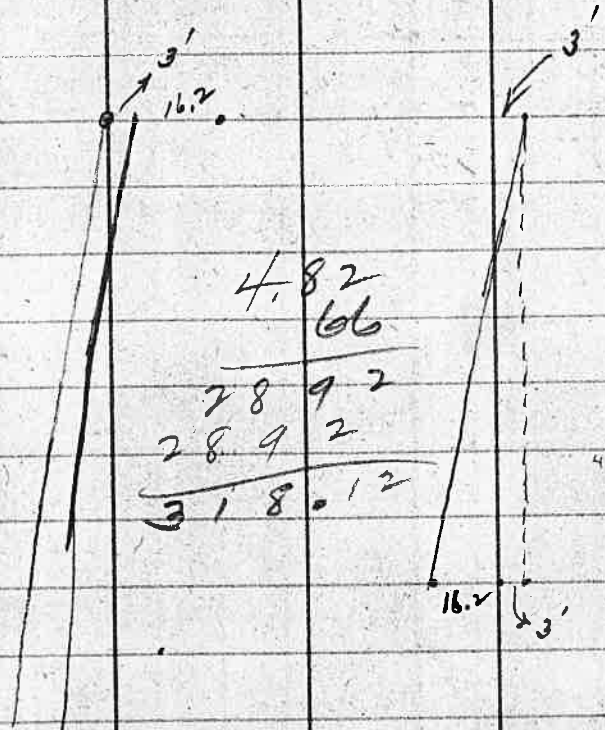 3'
3'
16.2
4.82
66
2892
2892
318.12
16.2
3'